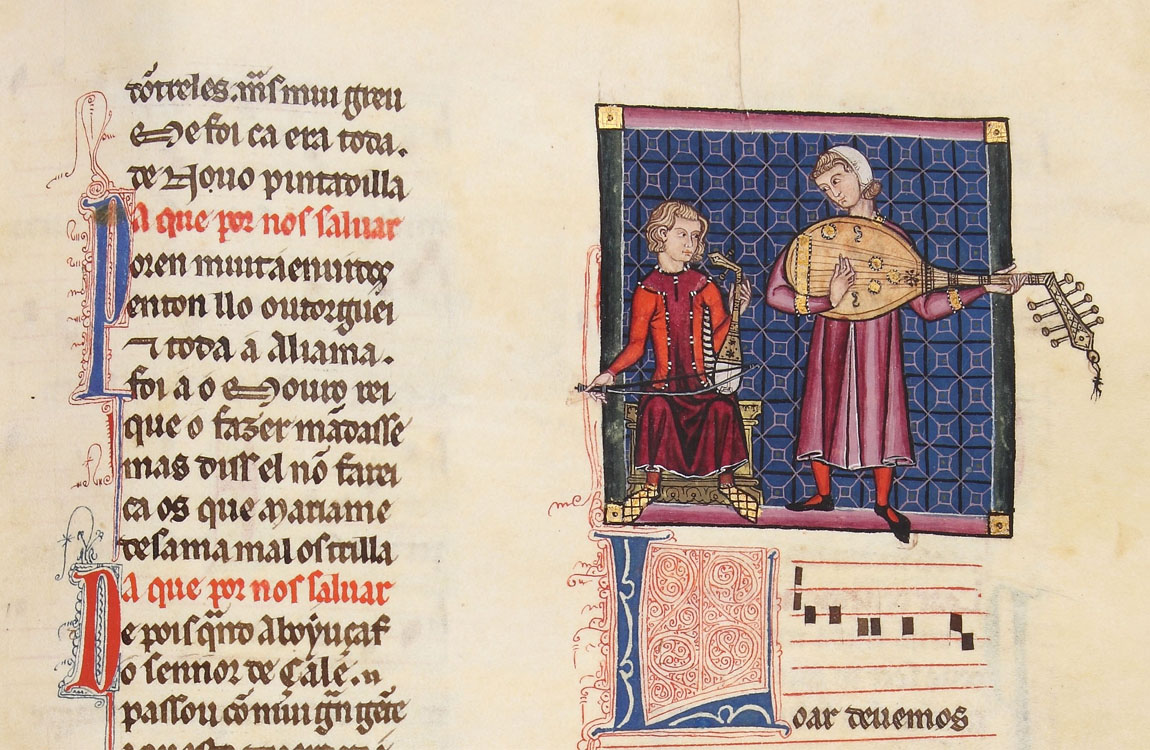 cõtreles. mais mui greu
Me foi ca era toda.
de Nouo pintadilla
A que por nos saluar
Poren muita enuidos
enton llo outorguei
⁊ toda a Aliama.
foi a o Mouro rei
que o fazer mãdasse
mas diss el nõ farei
ca os que Mariame
desama mal os trilla
A que por nos saluar
De pois qñdo Aboyuçaf
o sennor de Çalé.
passou cõ mui grã gẽte
Loar deuemos